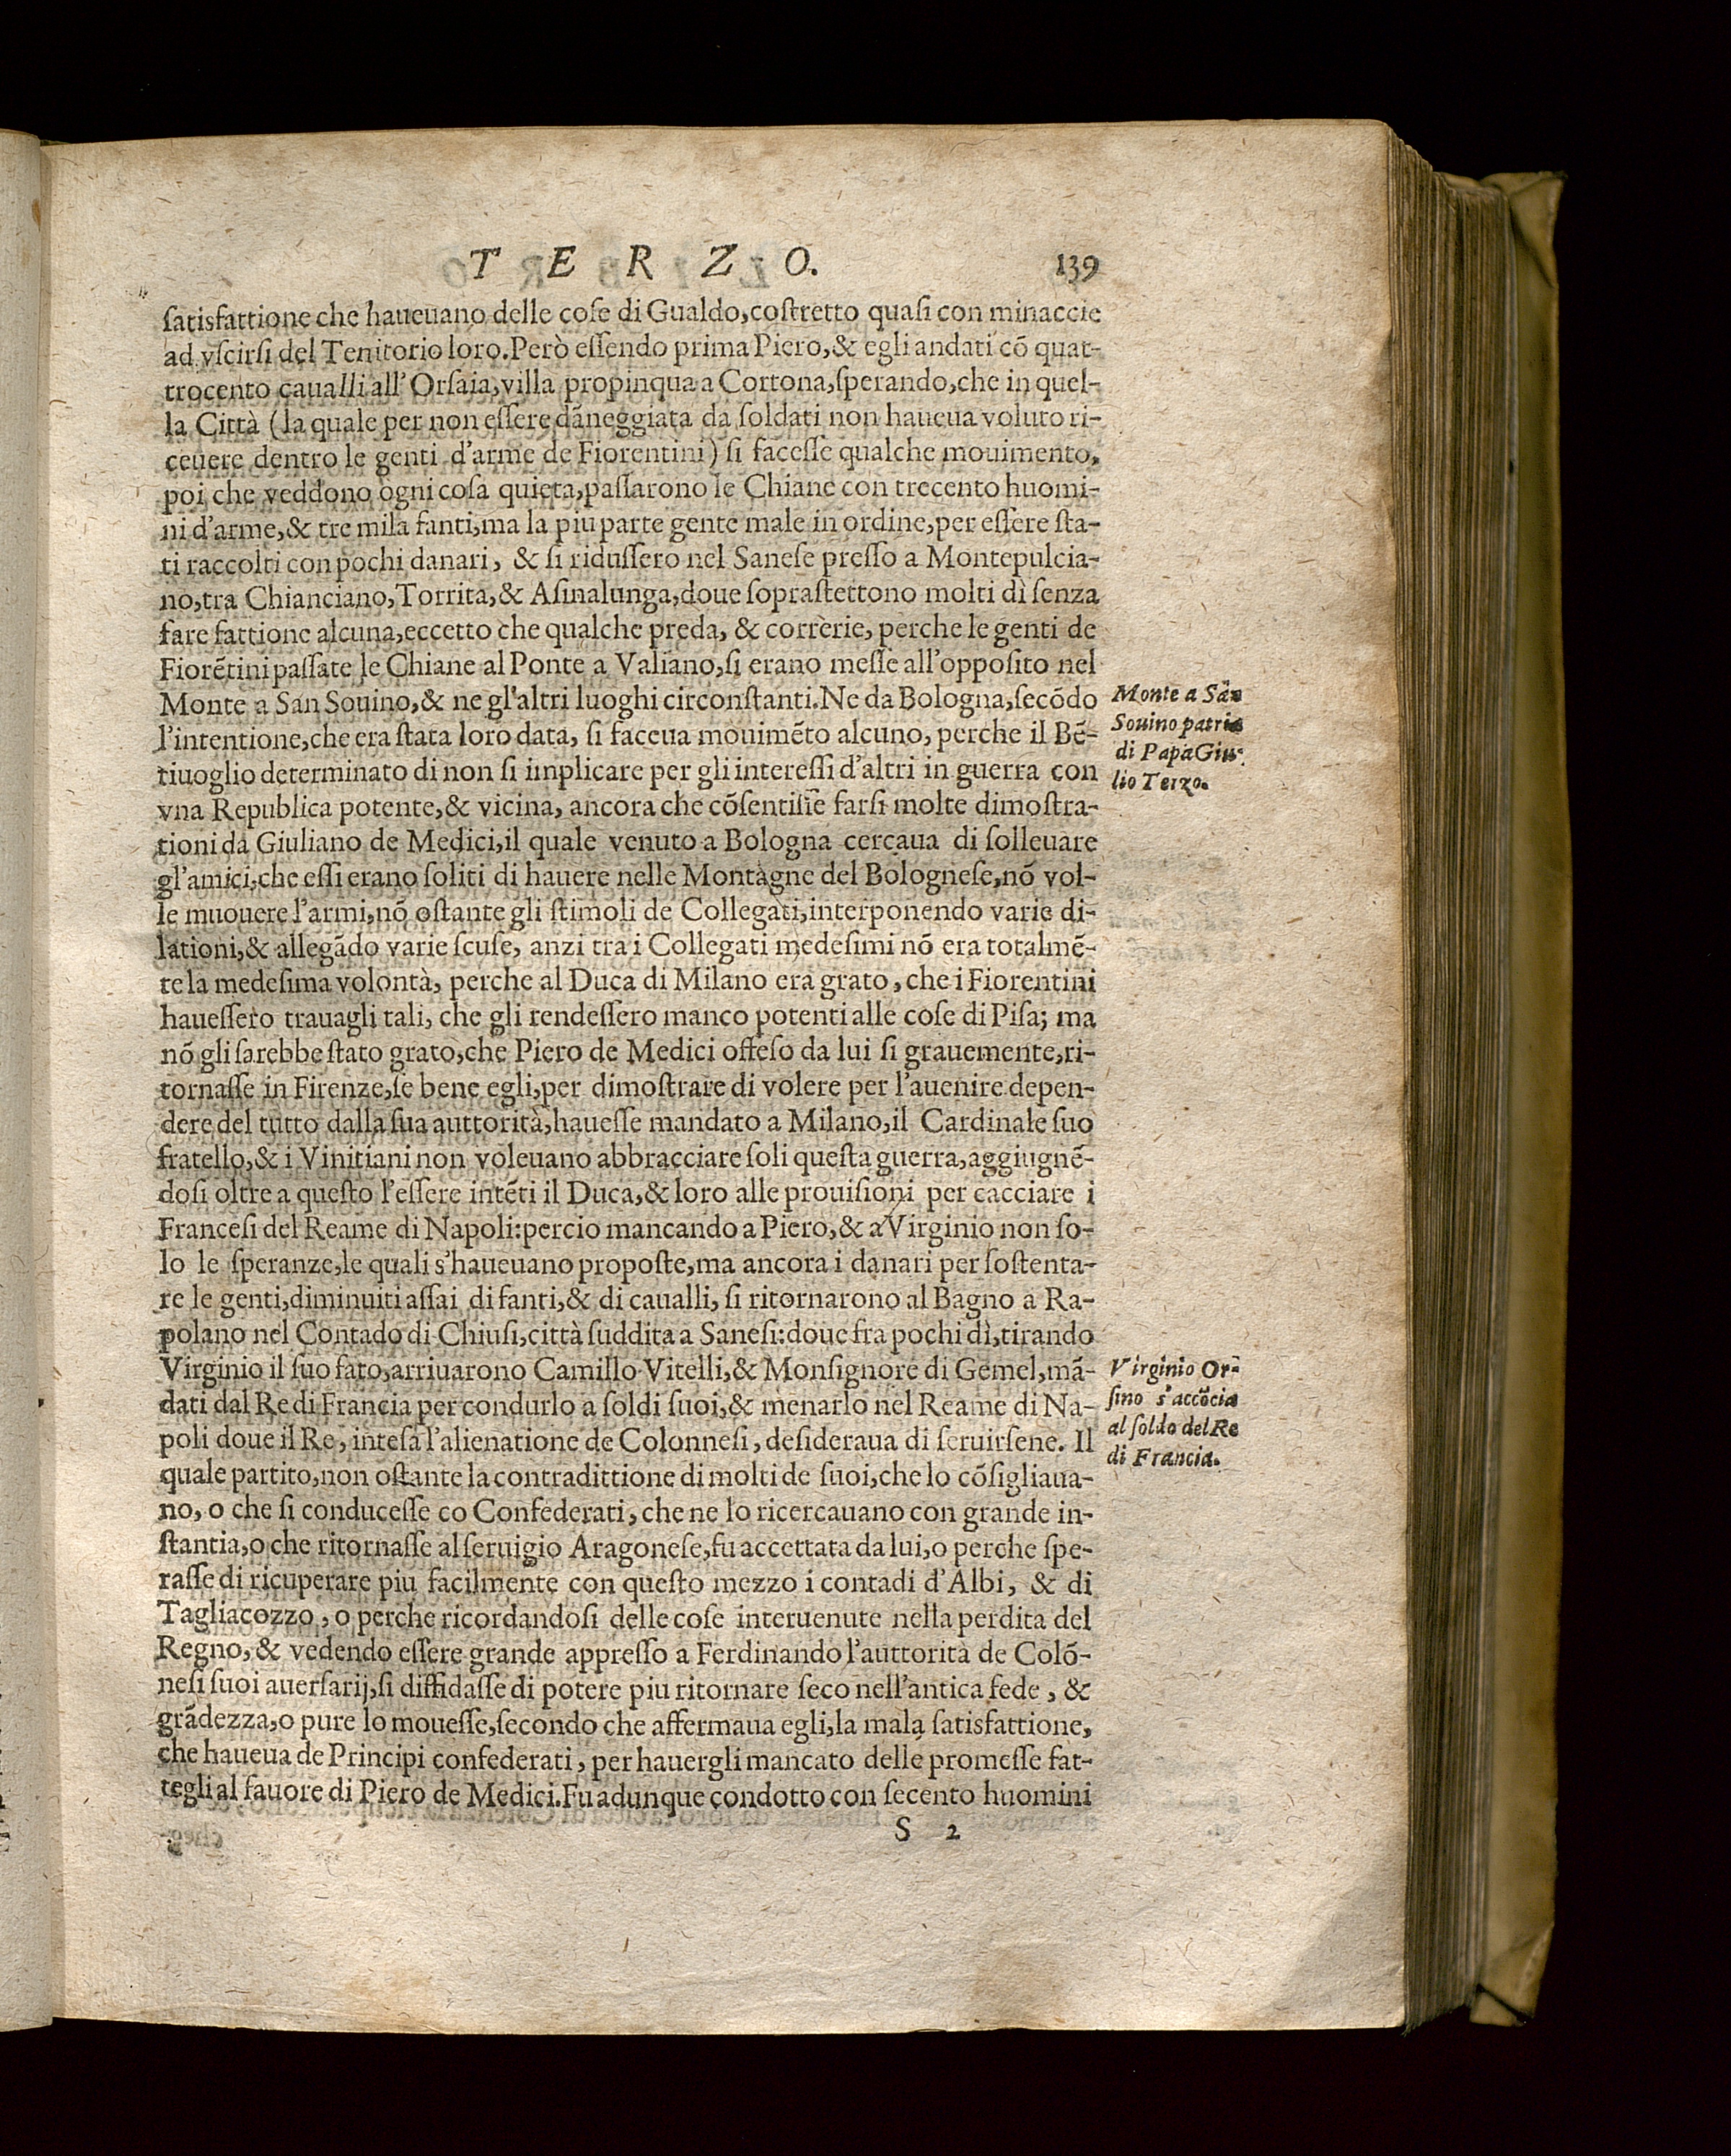 T E R Z O. 139
satisfattione che haueuano delle cose di Gualdo,costretto quasi con minaccie
ad vscirsi del Tenitorio loro.Però essendo prima Piero,& egli andati cõ quat-
trocento caualli all'Orsaia,villa propinqua a Cortona,sperando,che in quel-
la Città (la quale per non essere dãneggiata da soldati non haueua voluto ri-
ceuere dentro le genti d'arme de Fiorentini) si facesse qualche mouimento,
poi che veddono ogni cosa quieta,passarono le Chiane con trecento huomi-
ni d'arme,& tre mila fanti,ma la piu parte gente male in ordine,per essere sta-
ti raccolti con pochi danari, & si ridussero nel Sanese presso a Montepulcia-
no,tra Chianciano,Torrita,& Asinalunga,doue soprastettono molti dì senza
fare fattione alcuna,eccetto che qualche preda, & correrie, perche le genti de
Fiorẽtini passate le Chiane al Ponte a Valiano,si erano messe all'opposito nel
Monte a San Souino,& ne gl'altri luoghi circonstanti.Ne da Bologna,secõdo
l'intentione,che era stata loro data, si faceua mouimẽto alcuno, perche il Bẽ-
tiuoglio determinato di non si implicare per gli interessi d'altri in guerra con
vna Republica potente,& vicina, ancora che cõsentisse farsi molte dimostra-
tioni da Giuliano de Medici,il quale venuto a Bologna cercaua di solleuare
gl'amici,che essi erano soliti di hauere nelle Montagne del Bolognese,nõ vol-
le muouere l'armi,nõ ostante gli stimoli de Collegati,interponendo varie di-
lationi,& allegãdo varie scuse, anzi tra i Collegati medesimi nõ era totalmẽ-
te la medesima volontà, perche al Duca di Milano era grato, che i Fiorentini
hauessero trauagli tali, che gli rendessero manco potenti alle cose di Pisa; ma
nõ gli sarebbe stato grato,che Piero de Medici offeso da lui si grauemente,ri-
tornasse in Firenze,se bene egli,per dimostrare di volere per l'auenire depen-
dere del tutto dalla sua auttorità,hauesse mandato a Milano,il Cardinale suo
fratello,& i Vinitiani non voleuano abbracciare soli questa guerra,aggiugnẽ-
dosi oltre a questo l'essere intẽti il Duca,& loro alle prouisioni per cacciare i
Francesi del Reame di Napoli:percio mancando a Piero,& a Virginio non so-
lo le speranze,le quali s'haueuano proposte,ma ancora i danari per sostenta-
re le genti,diminuiti assai di fanti,& di caualli, si ritornarono al Bagno a Ra-
polano nel Contado di Chiusi,città suddita a Sanesi:doue fra pochi dì,tirando
Virginio il suo fato,arriuarono Camillo Vitelli,& Monsignore di Gemel,mã-
dati dal Re di Francia per condurlo a soldi suoi,& menarlo nel Reame di Na-
poli doue il Re, intesa l'alienatione de Colonnesi, desideraua di seruirsene. Il
quale partito,non ostante la contradittione di molti de suoi,che lo cõsigliaua-
no, o che si conducesse co Confederati, che ne lo ricercauano con grande in-
stantia,o che ritornasse al seruigio Aragonese,fu accettata da lui,o perche spe-
rasse di ricuperare piu facilmente con questo mezzo i contadi d'Albi, & di
Tagliacozzo, o perche ricordandosi delle cose interuenute nella perdita del
Regno,& vedendo essere grande appresso a Ferdinando l'auttorità de Colõ-
nesi suoi auersarij,si diffidasse di potere piu ritornare seco nell'antica fede, &
grãdezza,o pure lo mouesse,secondo che affermaua egli,la mala satisfattione,
che haueua de Principi confederati, per hauergli mancato delle promesse fat-
tegli al fauore di Piero de Medici.Fu adunque condotto con secento huomini
S 2
Monte a Sãn
Souino patria
di Papa Giu-
lio Terzo.
Virginio Or-
sino s'accõcia
al soldo del Re
di Francia.